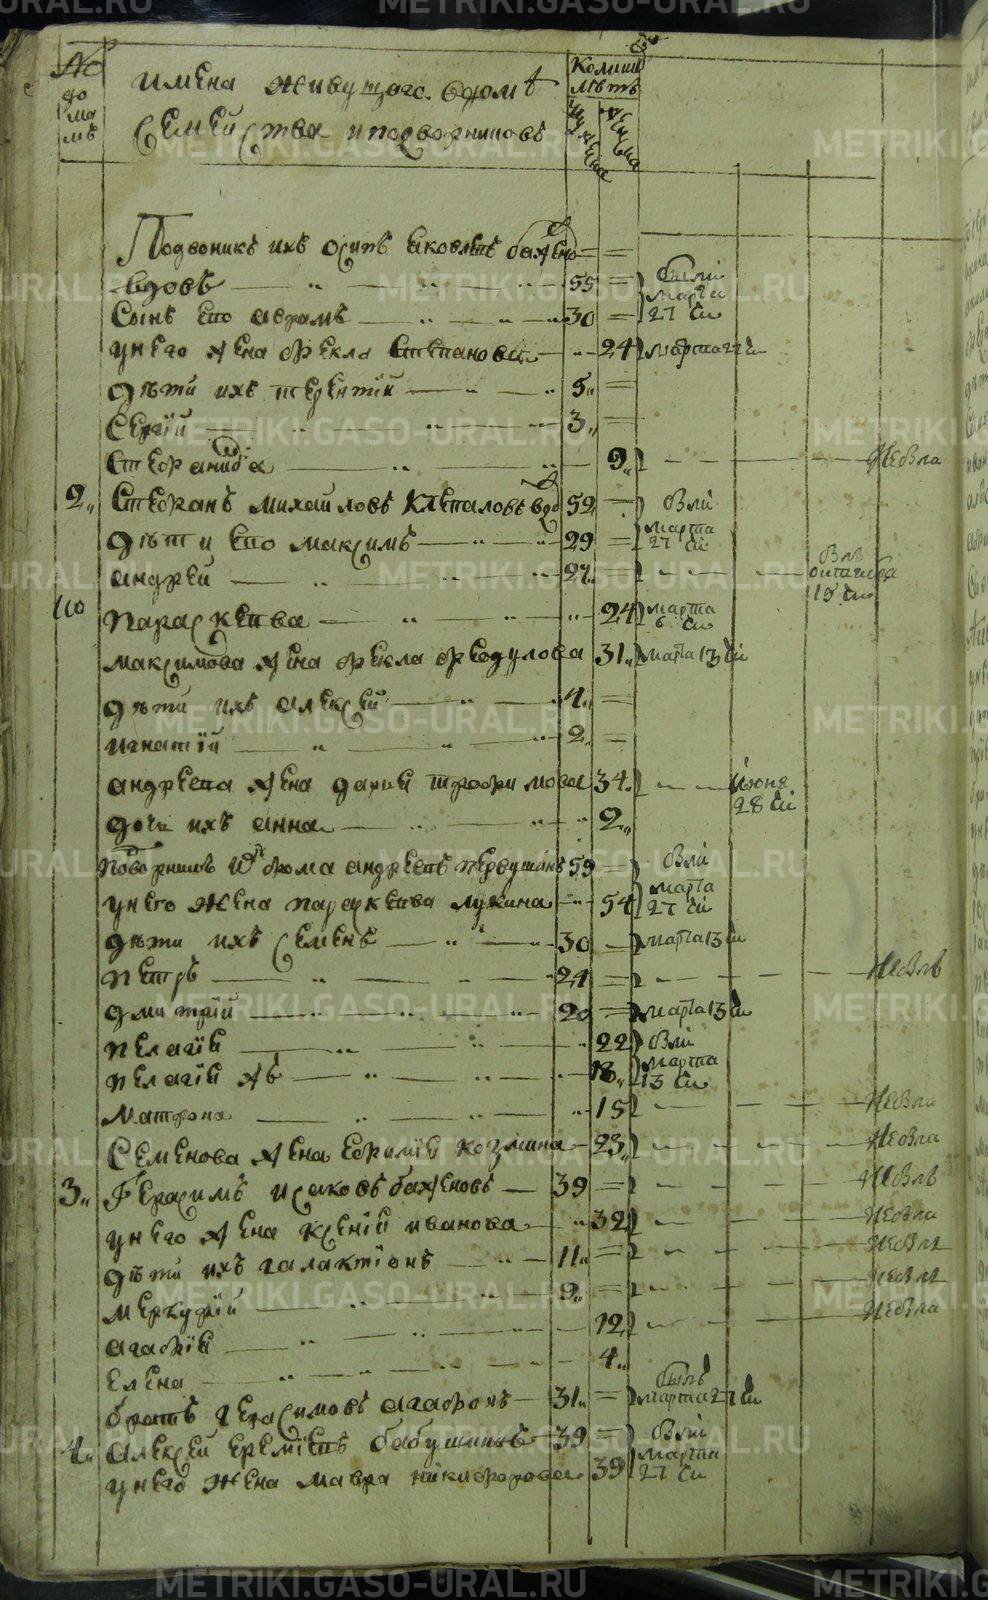 METRIKI.GASO-URAL.RU
№
до
ма
мъ
имена живущаго вдомѣ
семейства иподворниковъ
Колико
лѣтъ
мужеска
женска
Подвоникъ ихъ осипъ яковлевъ баженов
вдовъ 55 были марта 27 чи
Сынъ его аврамъ 30
унего жена фекла Степанова 24 марта 27 чи
дѣти ихъ терентїй 5
Сергїй 3
Степанида 9 Небыла
2 Степанъ михайловъ Клепаловъ вдо 52 были марта 27 чи
дѣти его максимъ 29
андрей 27 19 чи
Параскева 24 марта 6 чи
максимова жена фекла федулова 31 марта 13 чи
дѣти ихъ алексей 4
игнатїй 2
андреева жена дарья трофимова 34 июня 28 чи
дочь ихъ анна 2
фома андреевъ первушинъ 59 были марта 27 чи
унего жена параскева лукина 54
дѣти ихъ семенъ 30 марта 13 чи
петръ 24 Небылъ
дмитрїй 20 марта 13 чи
пелагїя 22 были марта 13 чи
пелагїя жъ 18
матрона 15 Небыла
Семенова жена евфимїя козмина 23 Небыла
3 Герасимъ исаковъ баженовъ 39 Небылъ
унего жена ксенїя иванова 32 Небыла
дѣти ихъ галактїонъ 11 Небылъ
меркурїй 9 Небылъ
агафїя 12 Небыла
елена 4
братъ герасимовъ агафонъ 31 былъ марта 27 чи
4 алексей еремѣевъ бабушкинъ 39 были марта 27 чи
унего жена мавра никифорова 39